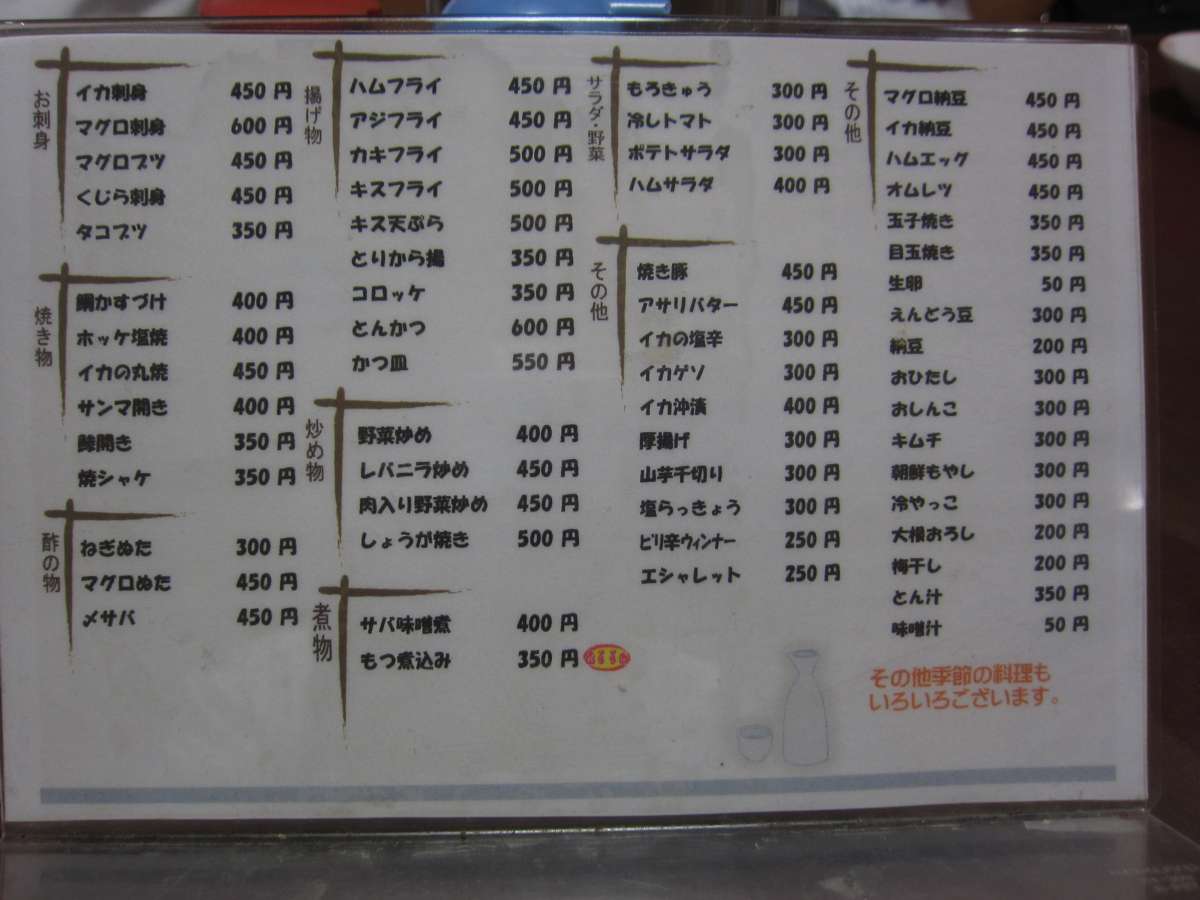 お刺身
イカ刺身 450 円
マグロ刺身 600 円
マグロブツ 450 円
くじら刺身 450 円
タコブツ 350 円
焼き物
鯛かすづけ 400 円
ホッケ塩焼 400 円
イカの丸焼 450 円
サンマ開き 400 円
鯵開き 350 円
焼シャケ 350 円
酢の物
ねぎぬた 300 円
マグロぬた 450 円
メサバ 450 円
揚げ物
ハムフライ 450 円
アジフライ 450 円
カキフライ 500 円
キスフライ 500 円
キス天ぷら 500 円
とりから揚 350 円
コロッケ 350 円
とんかつ 600 円
かつ皿 550 円
炒め物
野菜炒め 400 円
レバニラ炒め 450 円
肉入り野菜炒め 450 円
しょうが焼き 500 円
煮物
サバ味噌煮 400 円
もつ煮込み 350 円
サラダ・野菜
もろきゅう 300 円
冷しトマト 300 円
ポテトサラダ 300 円
ハムサラダ 400 円
その他
焼き豚 450 円
アサリバター 450 円
イカの塩辛 300 円
イカゲソ 300 円
イカ沖漬 400 円
厚揚げ 300 円
山芋千切り 300 円
塩らっきょう 300 円
ピリ辛ウィンナー 250 円
エシャレット 250 円
その他
マグロ納豆 450 円
イカ納豆 450 円
ハムエッグ 450 円
オムレツ 450 円
玉子焼き 350 円
目玉焼き 350 円
生卵 50 円
えんどう豆 300 円
納豆 200 円
おひたし 300 円
おしんこ 300 円
キムチ 300 円
朝鮮もやし 300 円
冷やっこ 300 円
大根おろし 200 円
梅干し 200 円
とん汁 350 円
味噌汁 50 円
その他季節の料理も
いろいろございます。